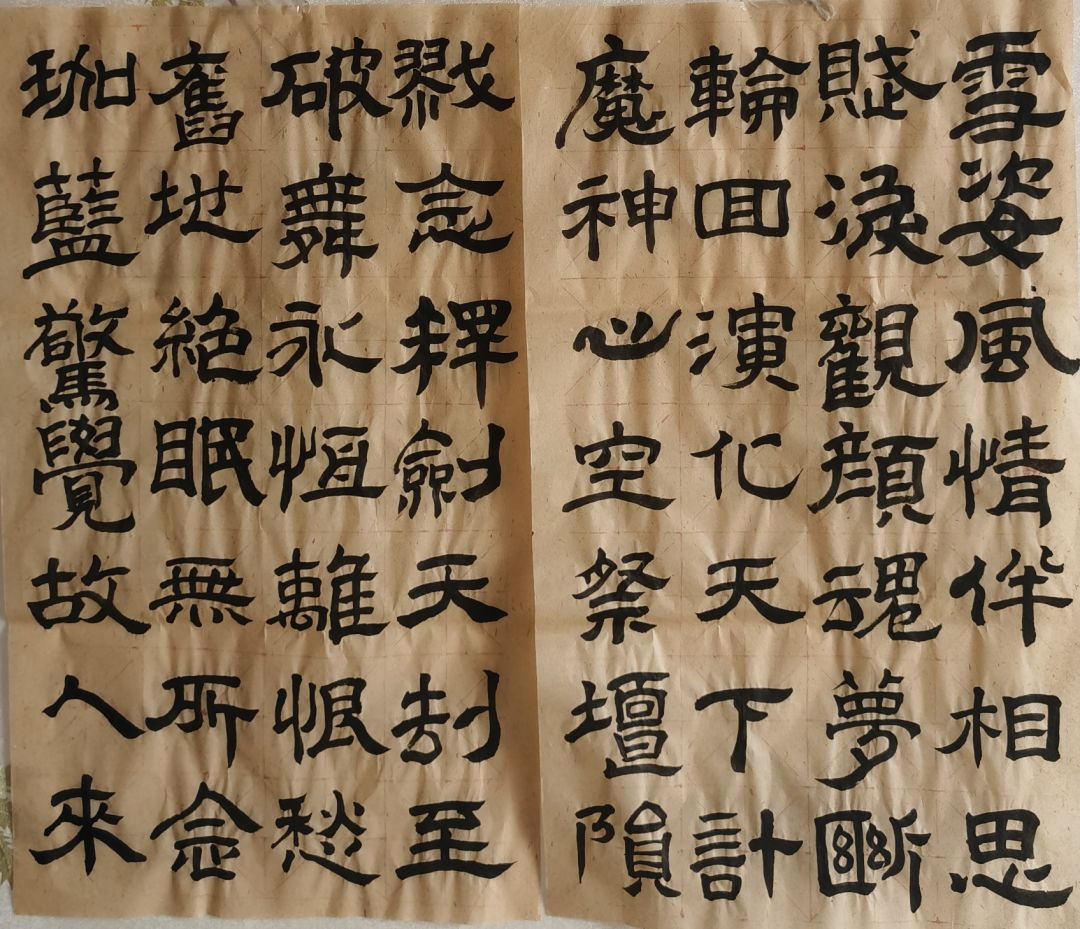 雪姿風情伴相思
賤淚觀顏魂夢斷
輪回演化天下計
魔神心空祭壇隕
戮念釋劍天刦至
破舞永恆離恨愁
舊地絕眠無所念
珈藍驚覺故人來